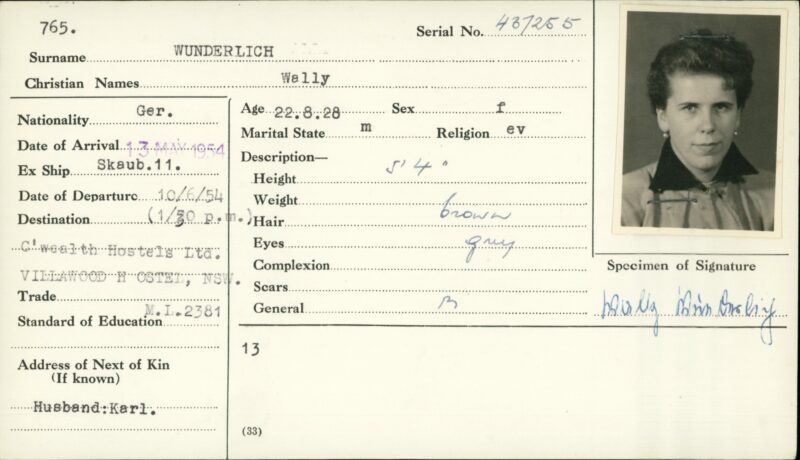 765.
Serial No. 43/255
Surname WUNDERLICH
Christian Names Wally
Nationality Ger.
Date of Arrival 13 MAY 1954
Ex Ship Skaub.11.
Date of Departure 10/6/54
Destination (1/30 p.m.)
C'wealth Hostels Ltd.
VILLAWOOD HOSTEL, NSW.
Trade
M.L.2381
Standard of Education
Address of Next of Kin
(If known)
Husband:Karl.
Age 22.8.28 Sex f
Marital State m Religion ev
Description—
Height 5' 4"
Weight
Hair brown
Eyes grey
Complexion
Scars
General
13
(33)
Specimen of Signature
Wally Wunderlich